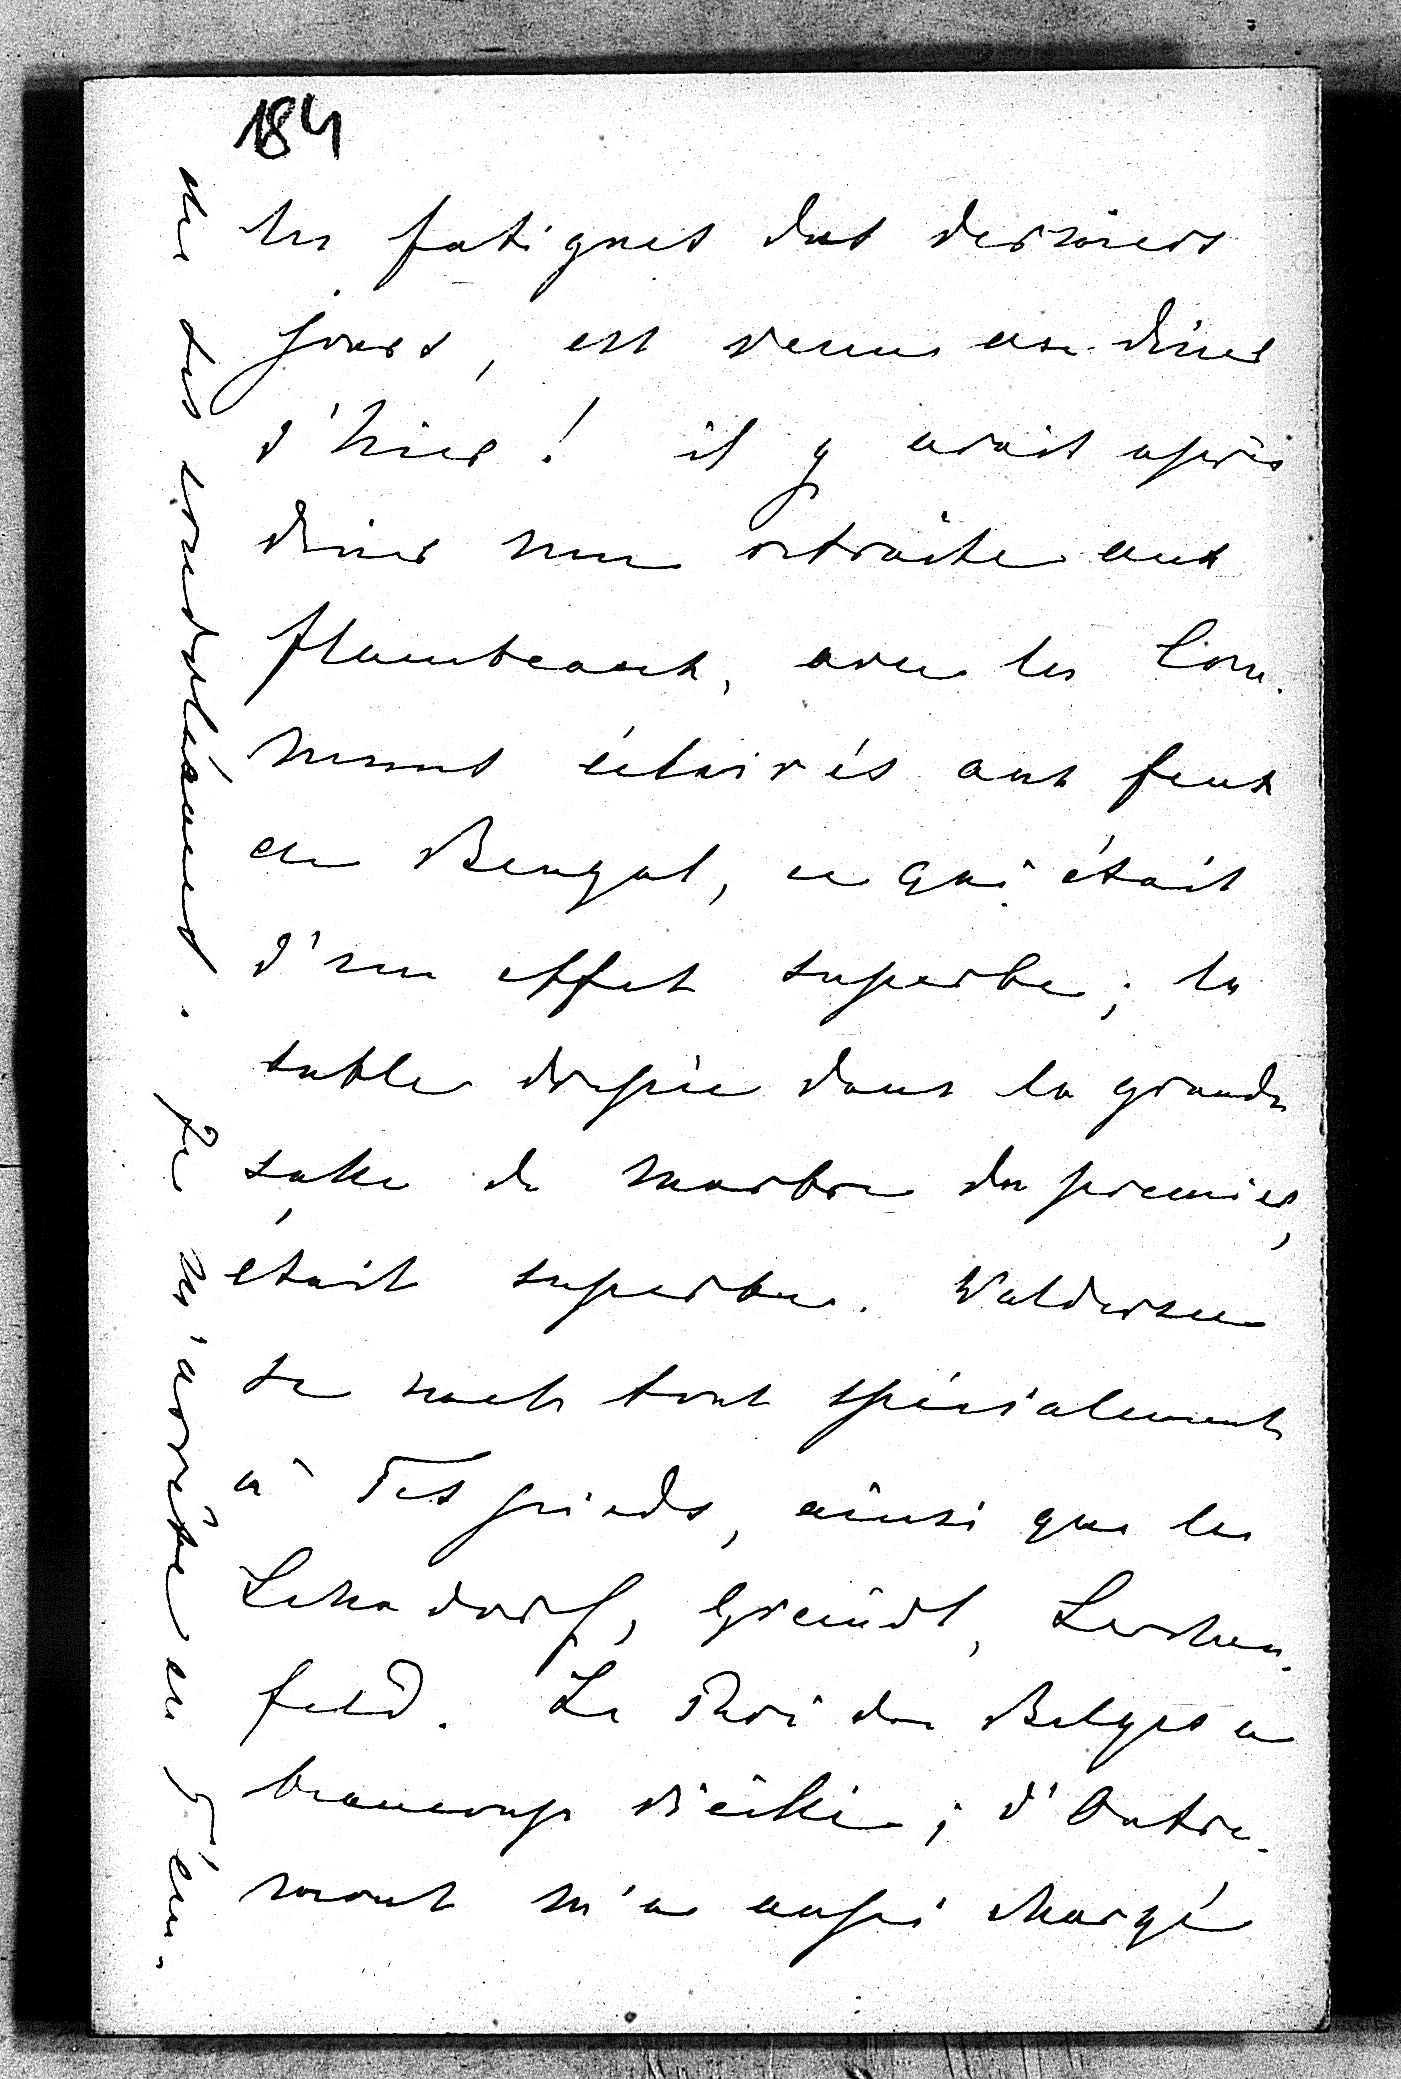 184
les fatigues des derniers
jours, est venu au diner
d'hier! il y avait après
diner une retraite aux
flambeaux, avec les Com-
muns éclairés aux feux
de Bengal, ce qui était
d'un effet superbe; la
table dressée dans la grande
salle de marbre du premier,
était superbe. Waldersee
se met tout spécialement
à Tes pieds, ainsi que les
Lehndorf, Greindl, Lerchen-
feld. Le Roi des Belges a
beaucoup vieilli; d'Outre-
mont m'a aussi chargé
de ses condoléances. Je m'arrête en T'em-